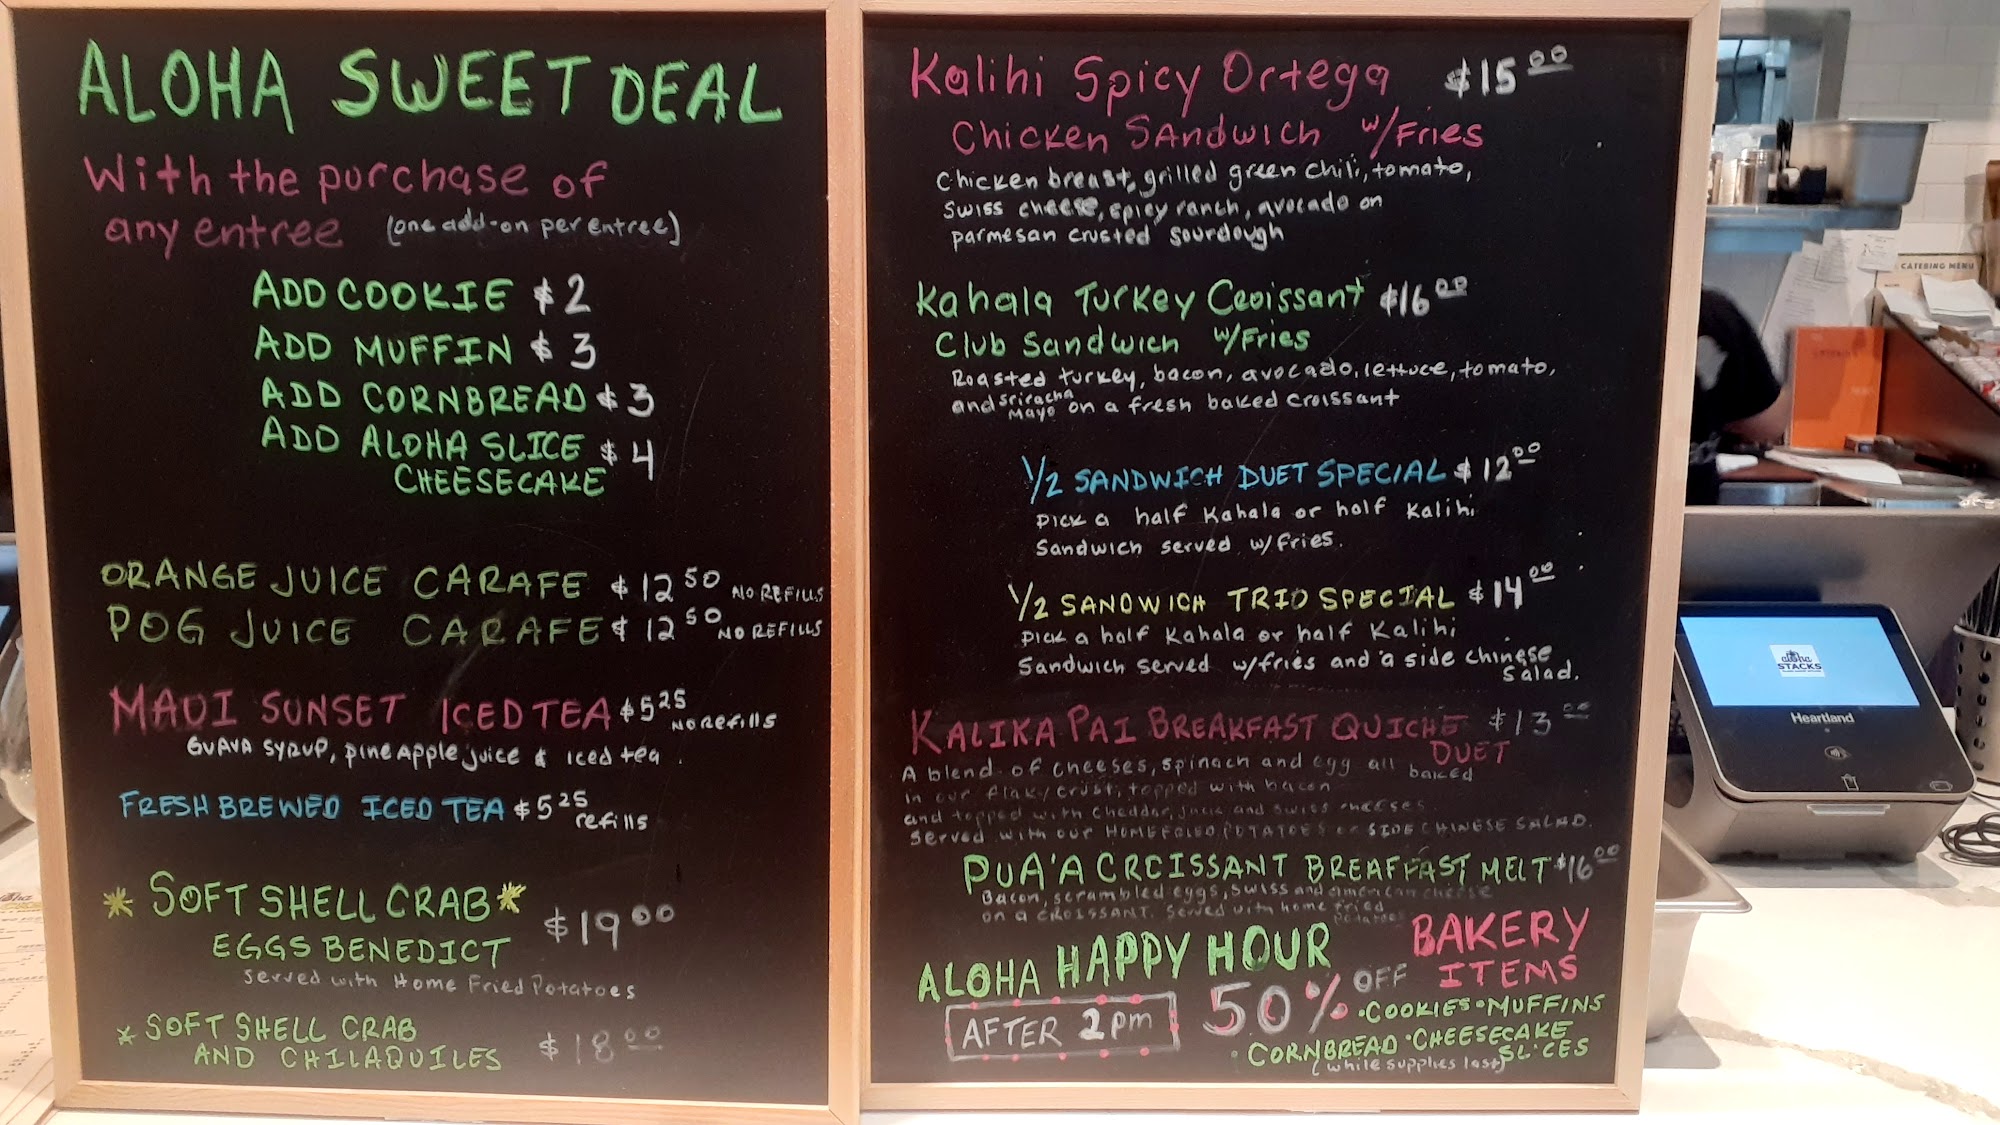 ALOHA SWEET DEAL
With the purchase of
any entree (one add-on per entree)
ADD COOKIE $2
ADD MUFFIN $3
ADD CORNBREAD $3
ADD ALOHA SLICE $4
CHEESECAKE
ORANGE JUICE CARAFE $12 50 NO REFILLS
POG JUICE CARAFE $12 50 NO REFILLS
MAUI SUNSET ICED TEA $5 25 No refills
GUAVA SYRUP, pineapple juice & iced tea.
FRESH BREWED ICED TEA $5 25 refills
* SOFT SHELL CRAB * $19 00
EGGS BENEDICT
Served with Home Fried Potatoes
* SOFT SHELL CRAB
AND CHILAQUILES $18 00
Kalihi Spicy Ortega $15 00
Chicken Sandwich w/Fries
Chicken breast, grilled green chili, tomato,
Swiss cheese, spicy ranch, avocado on
parmesan crusted sourdough
Kahala Turkey Croissant $16 00
Club Sandwich w/Fries
Roasted turkey, bacon, avocado, lettuce, tomato,
and Sriracha Mayo on a fresh baked croissant
1/2 SANDWICH DUET SPECIAL $12 00
Pick a half Kahala or half Kalihi
Sandwich served w/fries.
1/2 SANDWICH TRIO SPECIAL $14 00
Pick a half Kahala or half Kalihi
Sandwich served w/fries and a side chinese
Salad.
KALIKA PAI BREAKFAST QUICHE $13 00
DUET
A blend of cheeses, spinach and egg all baked
in our flaky crust, topped with bacon
and topped with cheddar, jack and swiss cheeses
Served with our HOMEFRIED POTATOES or SIDE CHINESE SALAD.
PUA'A CROISSANT BREAFFAST MELT $16 00
Bacon, scrambled eggs, swiss and american cheese
on a CROISSANT. Served with home fried
potatoes
ALOHA HAPPY HOUR
AFTER 2pm
50% OFF BAKERY
ITEMS
• COOKIES • MUFFINS
• CORNBREAD • CHEESECAKE
SLICES
(while supplies last)
CATERING MENU
aloha
STACKS
Heartland